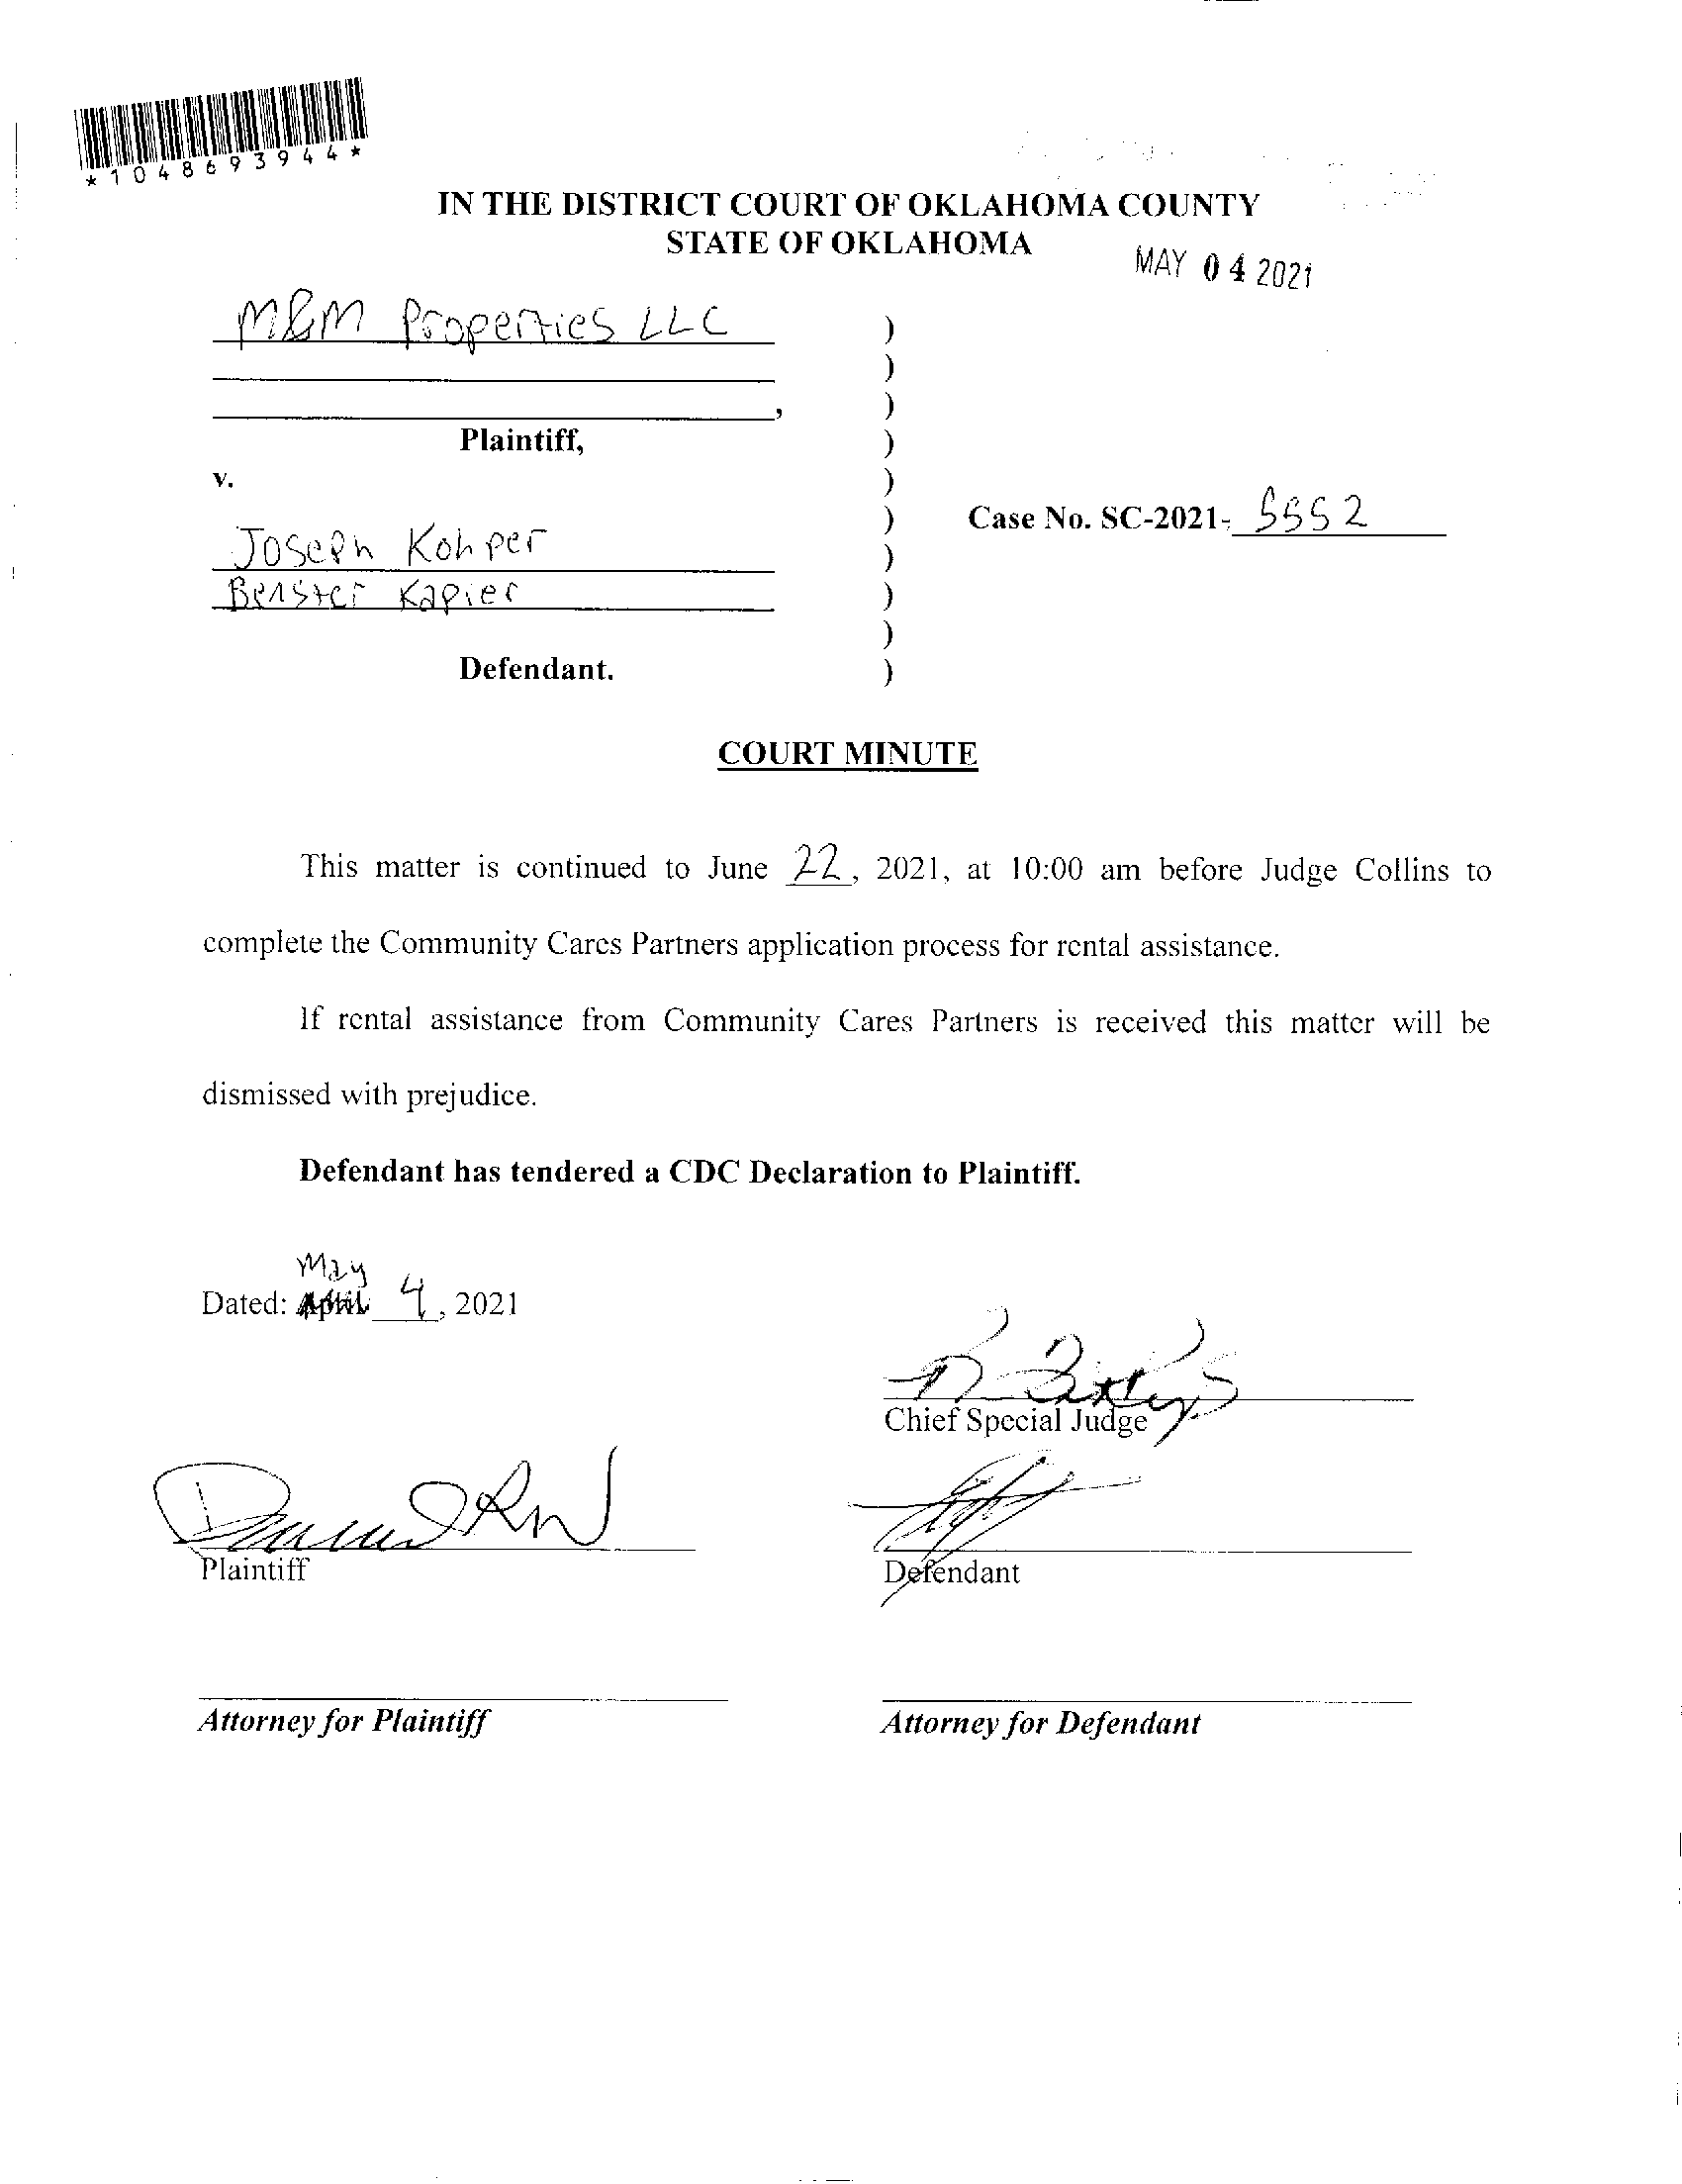 *1048693944*
IN THE DISTRICT COURT OF OKLAHOMA COUNTY
STATE OF OKLAHOMA
MAY 04 2021
M&M Properties LLC )
)
, )
Plaintiff, )
v. )
) Case No. SC-2021- 5552
Joseph Kohper )
Benster Kapier )
)
Defendant. )
COURT MINUTE
This matter is continued to June 22, 2021, at 10:00 am before Judge Collins to
complete the Community Cares Partners application process for rental assistance.
If rental assistance from Community Cares Partners is received this matter will be
dismissed with prejudice.
Defendant has tendered a CDC Declaration to Plaintiff.
May
Dated: April 4, 2021
Chief Special Judge
Plaintiff Defendant
Attorney for Plaintiff Attorney for Defendant